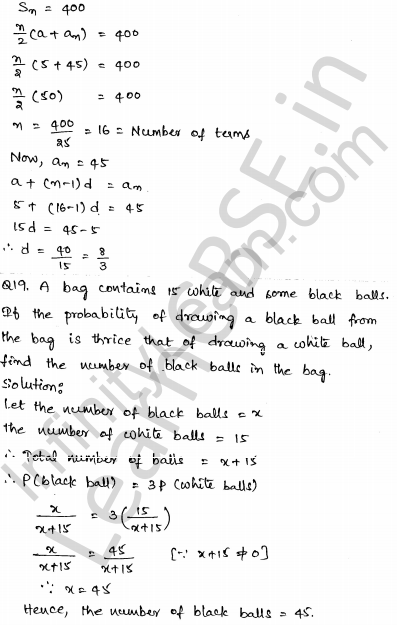 Sn = 400
n/2 (a + an) = 400
n/2 (5 + 45) = 400
n/2 (50) = 400
n = 400/25 = 16 = Number of terms
Now, an = 45
a + (n-1)d = an
5 + (16-1)d = 45
15d = 45-5
∴ d = 40/15 = 8/3
Q19. A bag contains 15 white and some black balls.
If the probability of drawing a black ball from
the bag is thrice that of drawing a white ball,
find the number of black balls in the bag.
Solution:
Let the number of black balls = x
the number of white balls = 15
∴ Total number of balls = x+15
∴ P(black ball) = 3P (white balls)
x/x+15 = 3(15/x+15)
x/x+15 = 45/x+15 [∵ x+15 ≠ 0]
∵ x = 45
Hence, the number of black balls = 45.
InfinityLearn.in
LearnCBSE.in